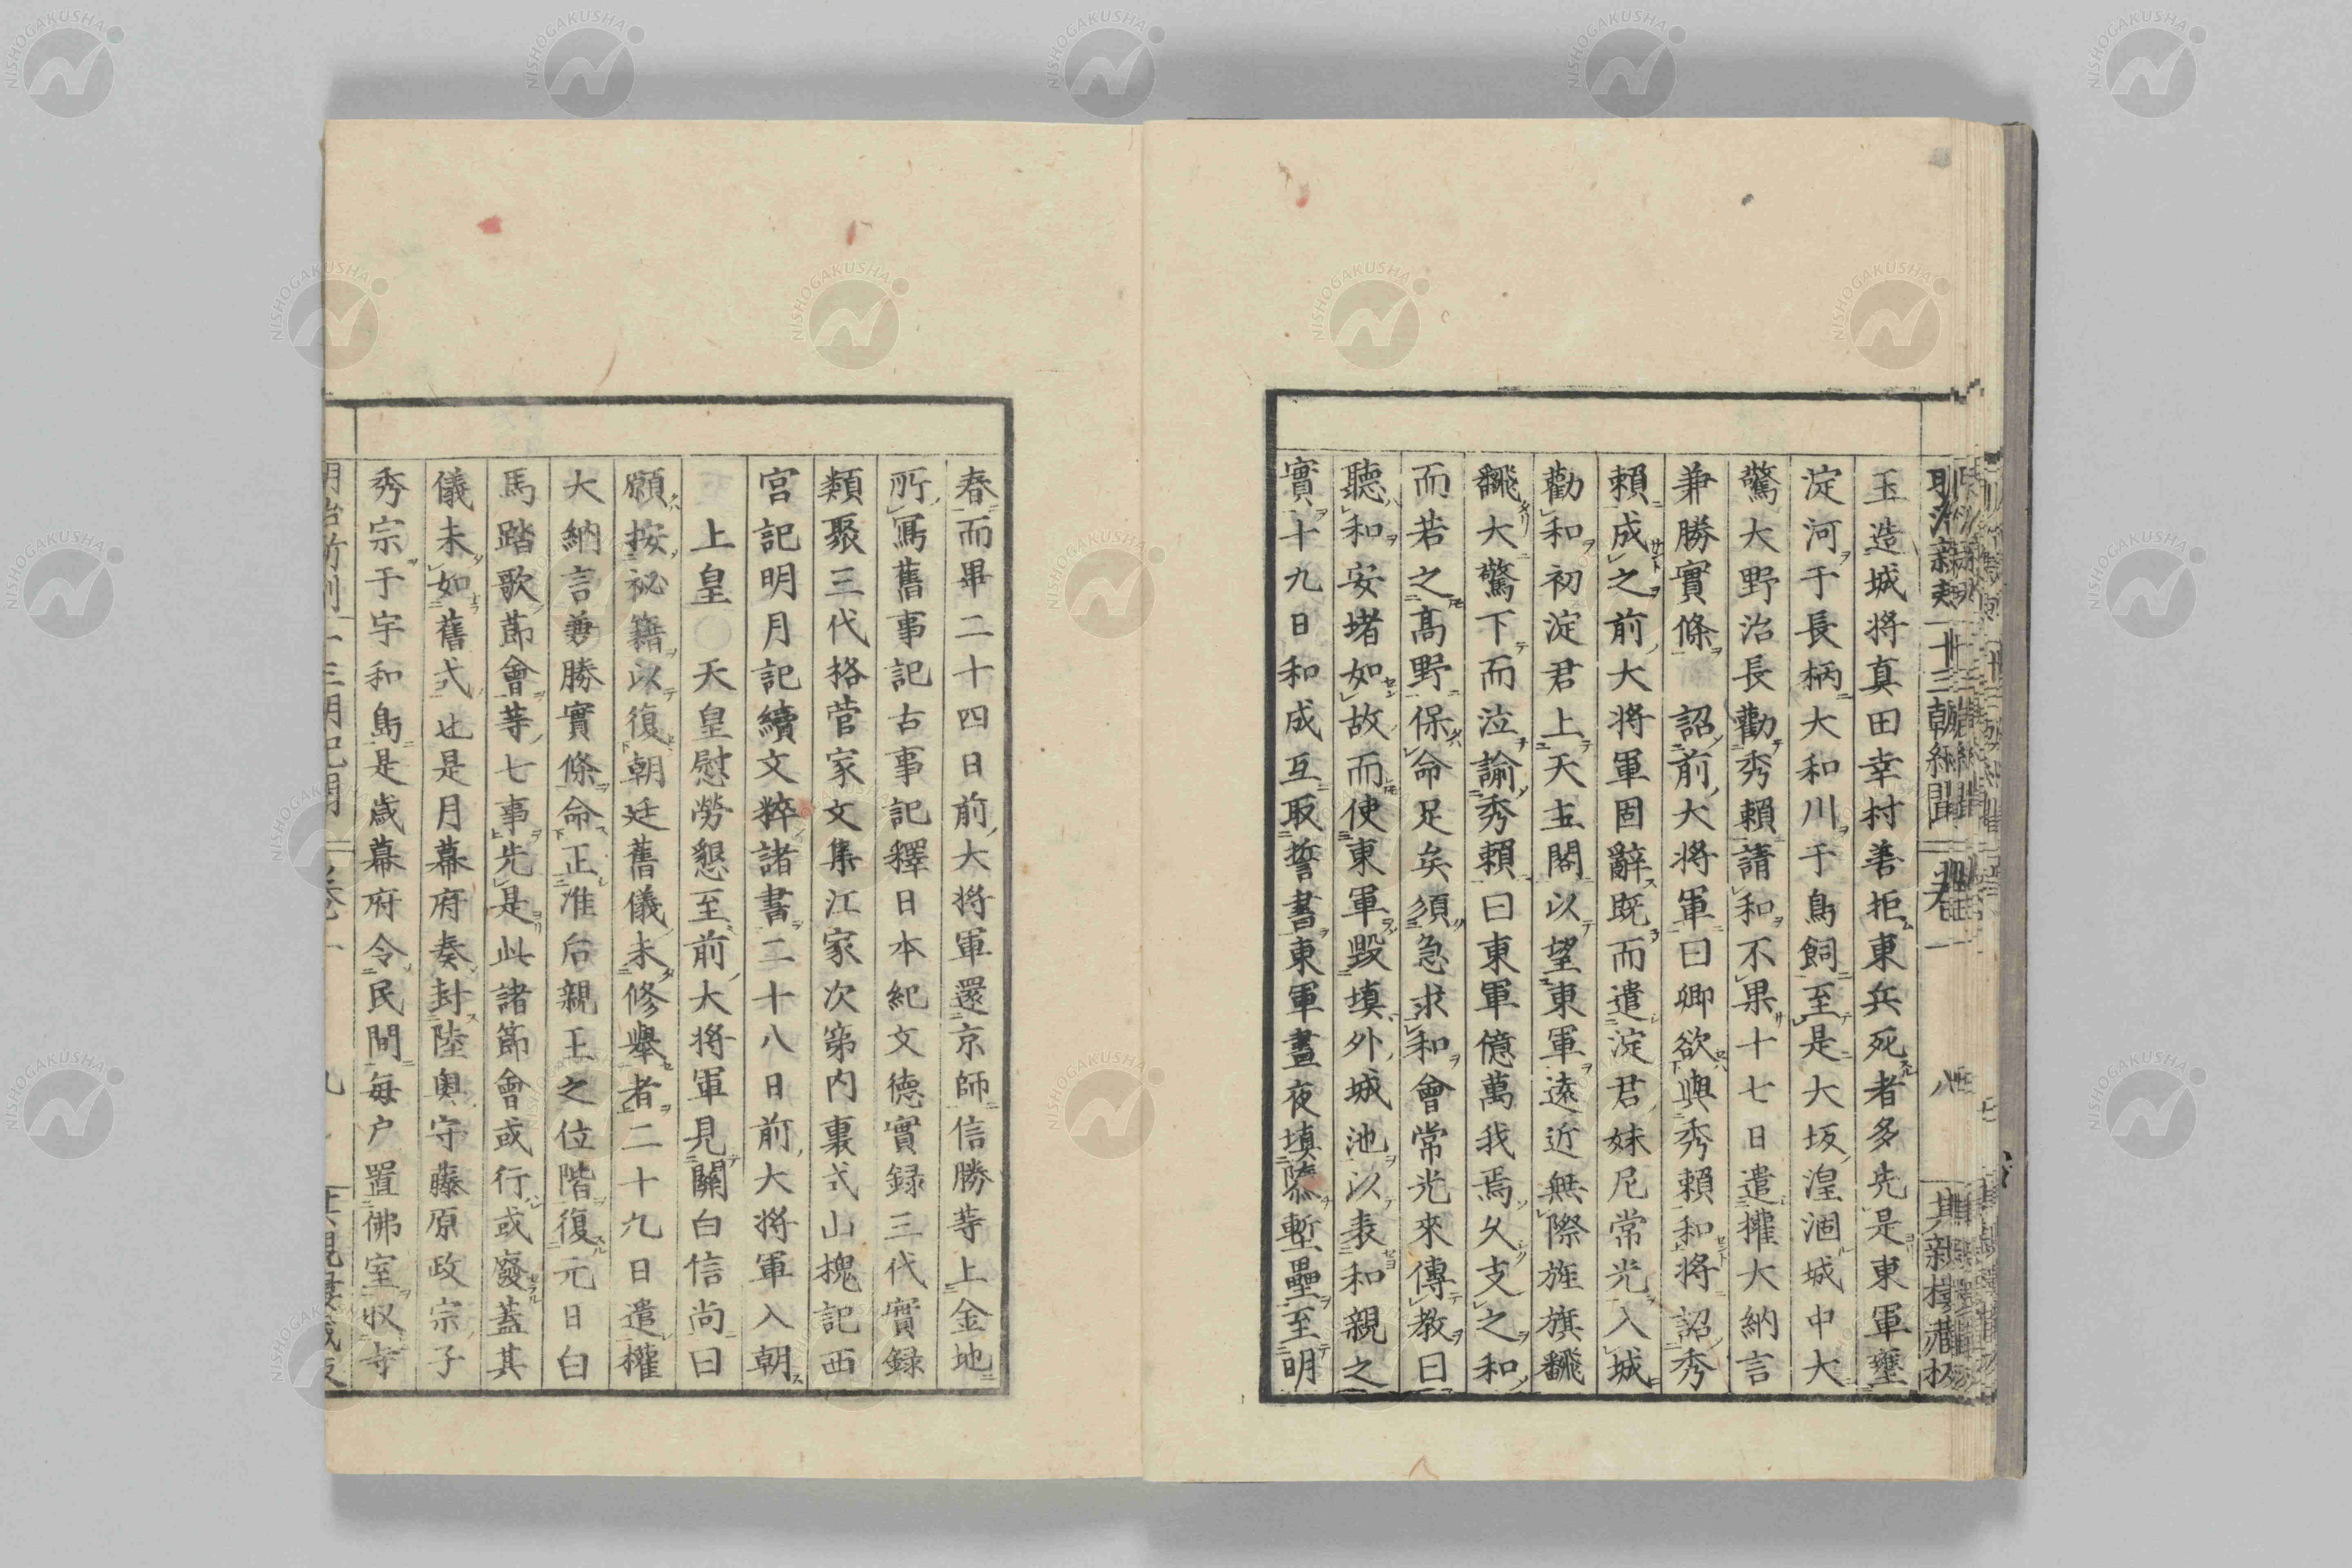 明治新刻 十三朝紀聞 卷一 八 其親樓藏板
玉造城將真田幸村善拒東兵死者多先是東軍壅
淀河于長柄大和川于鳥飼至是大坂湟涸城中大
驚大野治長勸秀賴請和不果十七日遣權大納言
兼勝實條 詔前大將軍曰卿欲與秀賴和將詔秀
賴成之前大將軍固辭既而遣淀君妹尼常光入城
勸和初淀君上天主閣以望東軍遠近無際旌旗飜
飜大驚下而泣諭秀賴曰東軍億萬我焉久支之和
而若之高野保命足矣須急求和會常光來傳教曰
聽和安堵如故而使東軍毀填外城池以表和親之
實十九日和成互取誓書東軍晝夜填隳塹壘至明
春而畢二十四日前大將軍還京師信勝等上金地
所寫舊事記古事記釋日本紀文德實錄三代實錄
類聚三代格菅家文集江家次第内裏式山槐記西
宮記明月記續文粹諸書二十八日前大將軍入朝
上皇 天皇慰勞懇至前大將軍見關白信尚曰
願按祕籍以復朝廷舊儀未修舉者二十九日遣權
大納言兼勝實條命正准后親王之位階復元日白
馬踏歌節會等七事先是此諸節會或行或廢蓋其
儀未如舊式也是月幕府奏封陸奧守藤原政宗子
秀宗于宇和島是歲幕府令民間每戸置佛室収寺